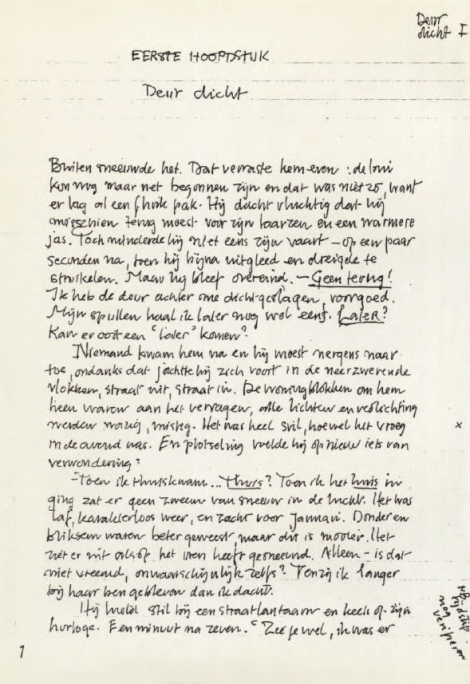 Deur
dicht I
EERSTE HOOFDSTUK
Deur dicht
Buiten sneeuwde het. Dat verraste hem even: de bui
kon nog maar net begonnen zijn en dat was niet zo, want
er lag al een flink pak. Hij dacht vluchtig dat hij
misschien terug moest voor zijn laarzen en een warmere
jas. Toch minderde hij niet eens zijn vaart – op een paar
seconden na, toen hij bijna uitgleed en dreigde te
struikelen. Maar hij bleef overeind. – Geen terug!
Ik heb de deur achter me dichtgeslagen, voorgoed.
Mijn spullen haal ik later nog wel eens. Later?
Kan er ooit een 'later' komen?
Niemand kwam hem na en hij moest nergens naar
toe, ondanks dat jachtte hij zich voort in de neerzwevende
vlokken, straat uit, straat in. De woningblokken om hem
heen waren aan het vervagen, alle lichten en verlichting
werden wazig, mistig. Het was heel stil, hoewel het vroeg
in de avond was. En plotseling voelde hij opnieuw iets van
verwondering:
– Toen ik thuiskwam... thuis? Toen ik het huis in
ging zat er geen zweem van sneeuw in de lucht. Het was
laf, karakterloos weer, en zacht voor januari. Donder en
bliksem waren beter geweest, maar dit is mooier. Het
ziet er uit alsof het uren heeft gesneeuwd. Alleen – is dat
niet vreemd, onwaarschijnlijk zelfs? Tenzij ik langer
bij haar ben gebleven dan ik dacht.
Hij hield stil bij een straatlantaarn en keek op zijn
horloge. Een minuut na zeven. "Zie je wel, ik was er
x
tijdstip
nog
1